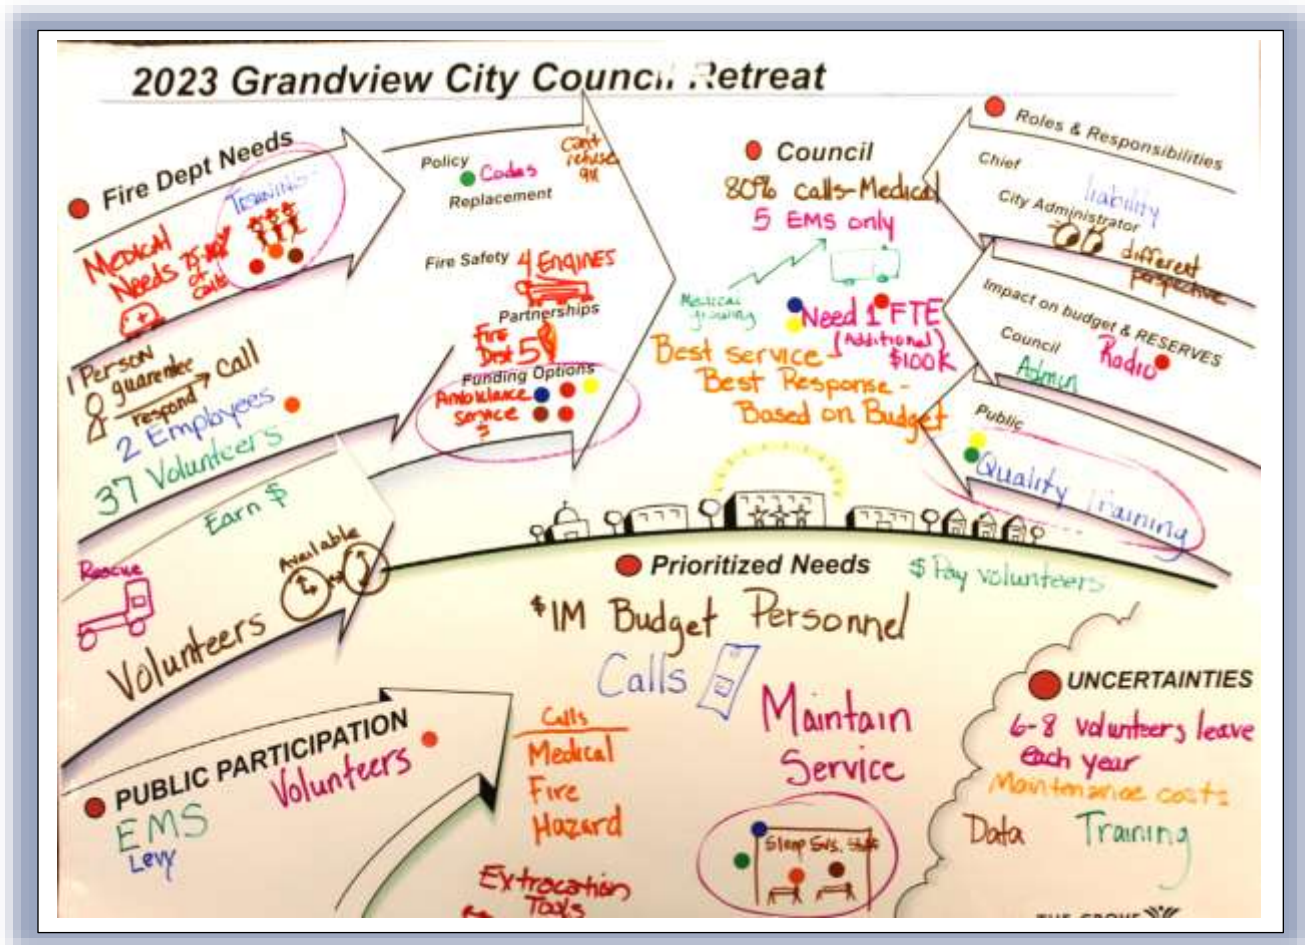 2023 Grandview City Council Retreat
Fire Dept Needs
TRAINING
Medical
Needs
of
calls
1 Person
guarentee
respond → Call
2 Employees
37 Volunteers
Earn $
Rescue
Available
Volunteers
Policy
Codes
can't
refuse
911
Replacement
Fire Safety
4 ENGINES
Partnerships
Fire
Dist 5
Funding Options
Ambulance
service
Council
80% calls-Medical
5 EMS only
Medical
growing
Need 1 FTE
(Additional)
$100K
Best service -
Best Response -
Based on Budget
Roles & Responsibilities
Chief
liability
City Administrator
different
perspective
Impact on budget & RESERVES
Council
Radio
Admin
Public
Quality Training
Prioritized Needs
$ Pay volunteers
$1M Budget Personnel
Calls
Maintain
Service
Calls
Medical
Fire
Hazard
Extrocation
Tools
PUBLIC PARTICIPATION
Volunteers
EMS
Levy
UNCERTAINTIES
6-8 volunteers leave
each year
Maintenance costs
Data Training
THE GROVE